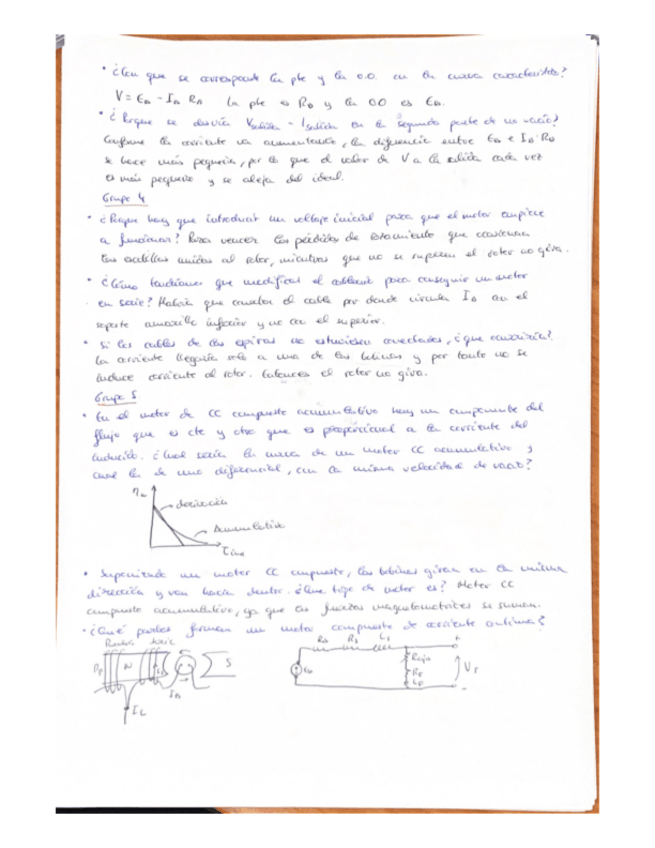 • ¿Con que se corresponde la pte y la o.o. en la curva característica?
V = EA - IA RA la pte es RA y la OO es EA.
• ¿Porque se desvía Vsalida - Isalida en la segunda parte de no vacío?
Conforme la corriente va aumentando, la diferencia entre EA e IA·RA
se hace más pequeña, por lo que el valor de V a la salida cada vez
es más pequeño y se aleja del ideal.
Grupo 4
• ¿Porque hay que introducir un voltaje inicial para que el motor empiece
a funcionar? Para vencer las pérdidas de rozamiento que ocasionan
las escobillas unidas al rotor, mientras que no se superen el rotor no gira.
• ¿Cómo tendríamos que modificar el cableado para conseguir un motor
en serie? Habría que cambiar el cable por donde circula IA en el
soporte amarillo inferior y no en el superior.
• Si los cables de las espiras no estuviesen conectados, ¿que ocurriría?
La corriente llegaría solo a una de las bobinas y por tanto no se
induce corriente al rotor. Entonces el rotor no gira.
Grupo 5
• En el motor de CC compuesto acumulativo hay un componente del
flujo que es cte y otro que es proporcional a la corriente del
inducido. ¿Cual sería la curva de un motor CC acumulativo y
cual la de uno diferencial, con la misma velocidad de vacío?
derivación
Acumulativo
τind
• Suponiendo un motor CC compuesto, las bobinas giran en la misma
dirección y van hacia dentro. ¿Que tipo de motor es? Motor CC
compuesto acumulativo, ya que las fuerzas magnetomotrices se suman.
• ¿Qué partes forman un motor compuesto de corriente continua?
serie
N
S
IA
IL
RA RS LS
EA
Rajus
RF
LF
VT
+
-